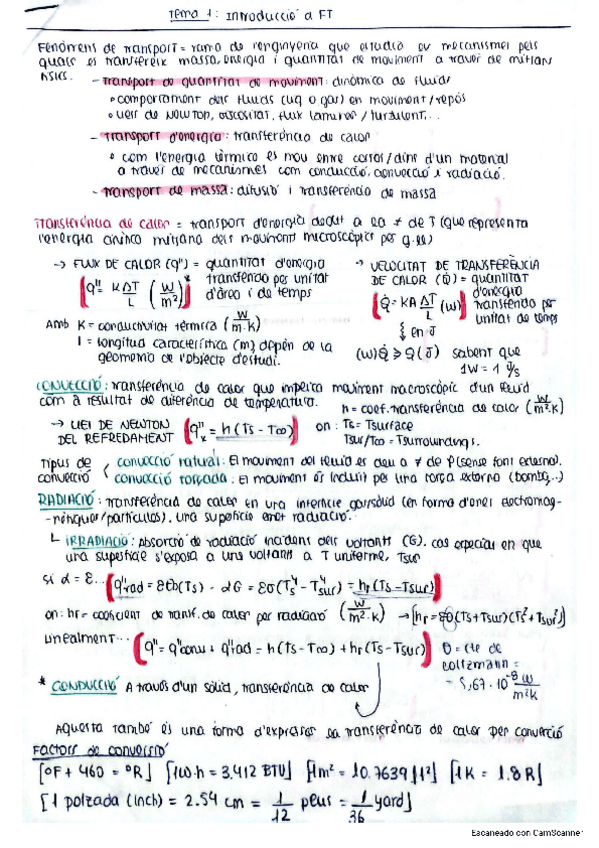 Tema 1: Introducció a FT
Fenòmens de transport = rama de l'enginyeria que estudia els mecanismes pels
quals es transfereix massa, energia i quantitat de moviment a través de mitjans
físics.
- Transport de quantitat de moviment: dinàmica de fluids
∘ comportament dels fluids (líq o gas) en moviment/repòs
∘ lleis de Newton, viscositat, flux laminar / turbulent...
- Transport d'energia: transferència de calor
∘ com l'energia tèrmica es mou entre cossos/dins d'un material
a través de mecanismes com conducció, convecció i radiació.
- Transport de massa: difusió i transferència de massa
Transferència de calor = transport d'energia degut a la ≠ de T (que representa
l'energia cinètica mitjana dels moviments microscòpics per g.ll)
→ FLUX DE CALOR (q") = quantitat d'energia
transferida per unitat
d'àrea i de temps
[q" = K ΔT/L (W/m²)]*
→ VELOCITAT DE TRANSFERÈNCIA
DE CALOR (Q̇) = quantitat
d'energia
transferida per
unitat de temps
[Q̇ = KA ΔT/L (W)]
↳ en J
Amb K = conductivitat tèrmica (W/m·K)
l = longitud característica (m), depèn de la
geometria de l'objecte d'estudi.
(W) Q̇ ≷ Q (J) sabent que
1W = 1 J/s
CONVECCIÓ: Transferència de calor que implica moviment macroscòpic d'un fluid
com a resultat de diferència de temperatura.
h = coef. transferència de calor (W/m²·K)
→ LLEI DE NEWTON
DEL REFREDAMENT [q"x = h(Ts - T∞)] on: Ts = Tsurface
Tsur/T∞ = Tsurroundings.
Tipus de
convecció
convecció natural: El moviment del fluid es deu a ≠ de ρ (sense font externa).
convecció forçada: El moviment és induït per una força externa (bomba,..)
RADIACIÓ: Transferència de calor en una interfície gas/sòlid (en forma d'ones electromag-
-nètiques/partícules). Una superfície emet radiació.
↳ IRRADIACIÓ: Absorció de radiació incident dels voltants (G). Cas especial en que
una superfície s'exposa a uns voltants a T uniforme, Tsur
si α = ε... [q"rad = εEb(Ts) - αG = εσ(Ts⁴ - Tsur⁴) = hr(Ts - Tsur)]
on: hr = coeficient de transf. de calor per radiació (W/m²·K) → [hr = εσ(Ts + Tsur)(Ts² + Tsur²)]
Linealment... [q" = q"conv + q"rad = h(Ts - T∞) + hr(Ts - Tsur)]
σ = cte de
Boltzmann =
= 5,67·10⁻⁸ W/m²K
* CONDUCCIÓ A través d'un sòlid, transferència de calor
Aquesta també és una forma d'expressar la transferència de calor per convecció
Factors de conversió
[°F + 460 = °R] [1W·h = 3.412 BTU] [1m² = 10.7639 ft²] [1K = 1.8 R]
[1 polzada (inch) = 2.54 cm = 1/12 peus = 1/36 yard]
Escaneado con CamScanner